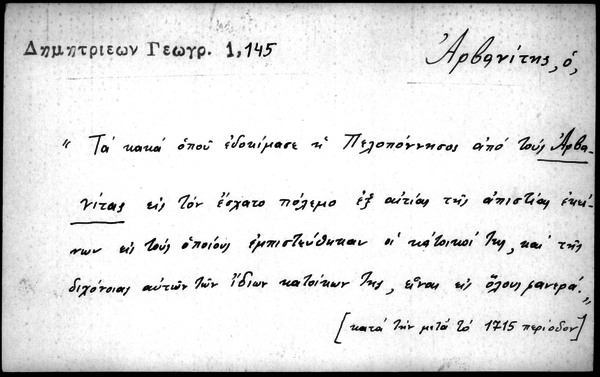 Δημητριεων Γεωγρ. 1,145
Ἀρβανίτης, ὁ,
"Τά κακά ὁποῦ ἐδοκίμασε ἡ Πελοπόννησος ἀπό τούς Ἀρβα-
νίτας εἰς τόν ἔσχατο πόλεμο ἐξ αἰτίας τῆς ἀπιστίας ἐκεί-
νων εἰς τούς ὁποίους ἐμπιστεύθηκαν οἱ κάτοικοί της, καί τῆς
διχόνοιας αὐτῶν τῶν ἴδιων κατοίκων της, εἶναι εἰς ὅλους φανερά."
[κατά τήν μετά τό 1715 περίοδον]